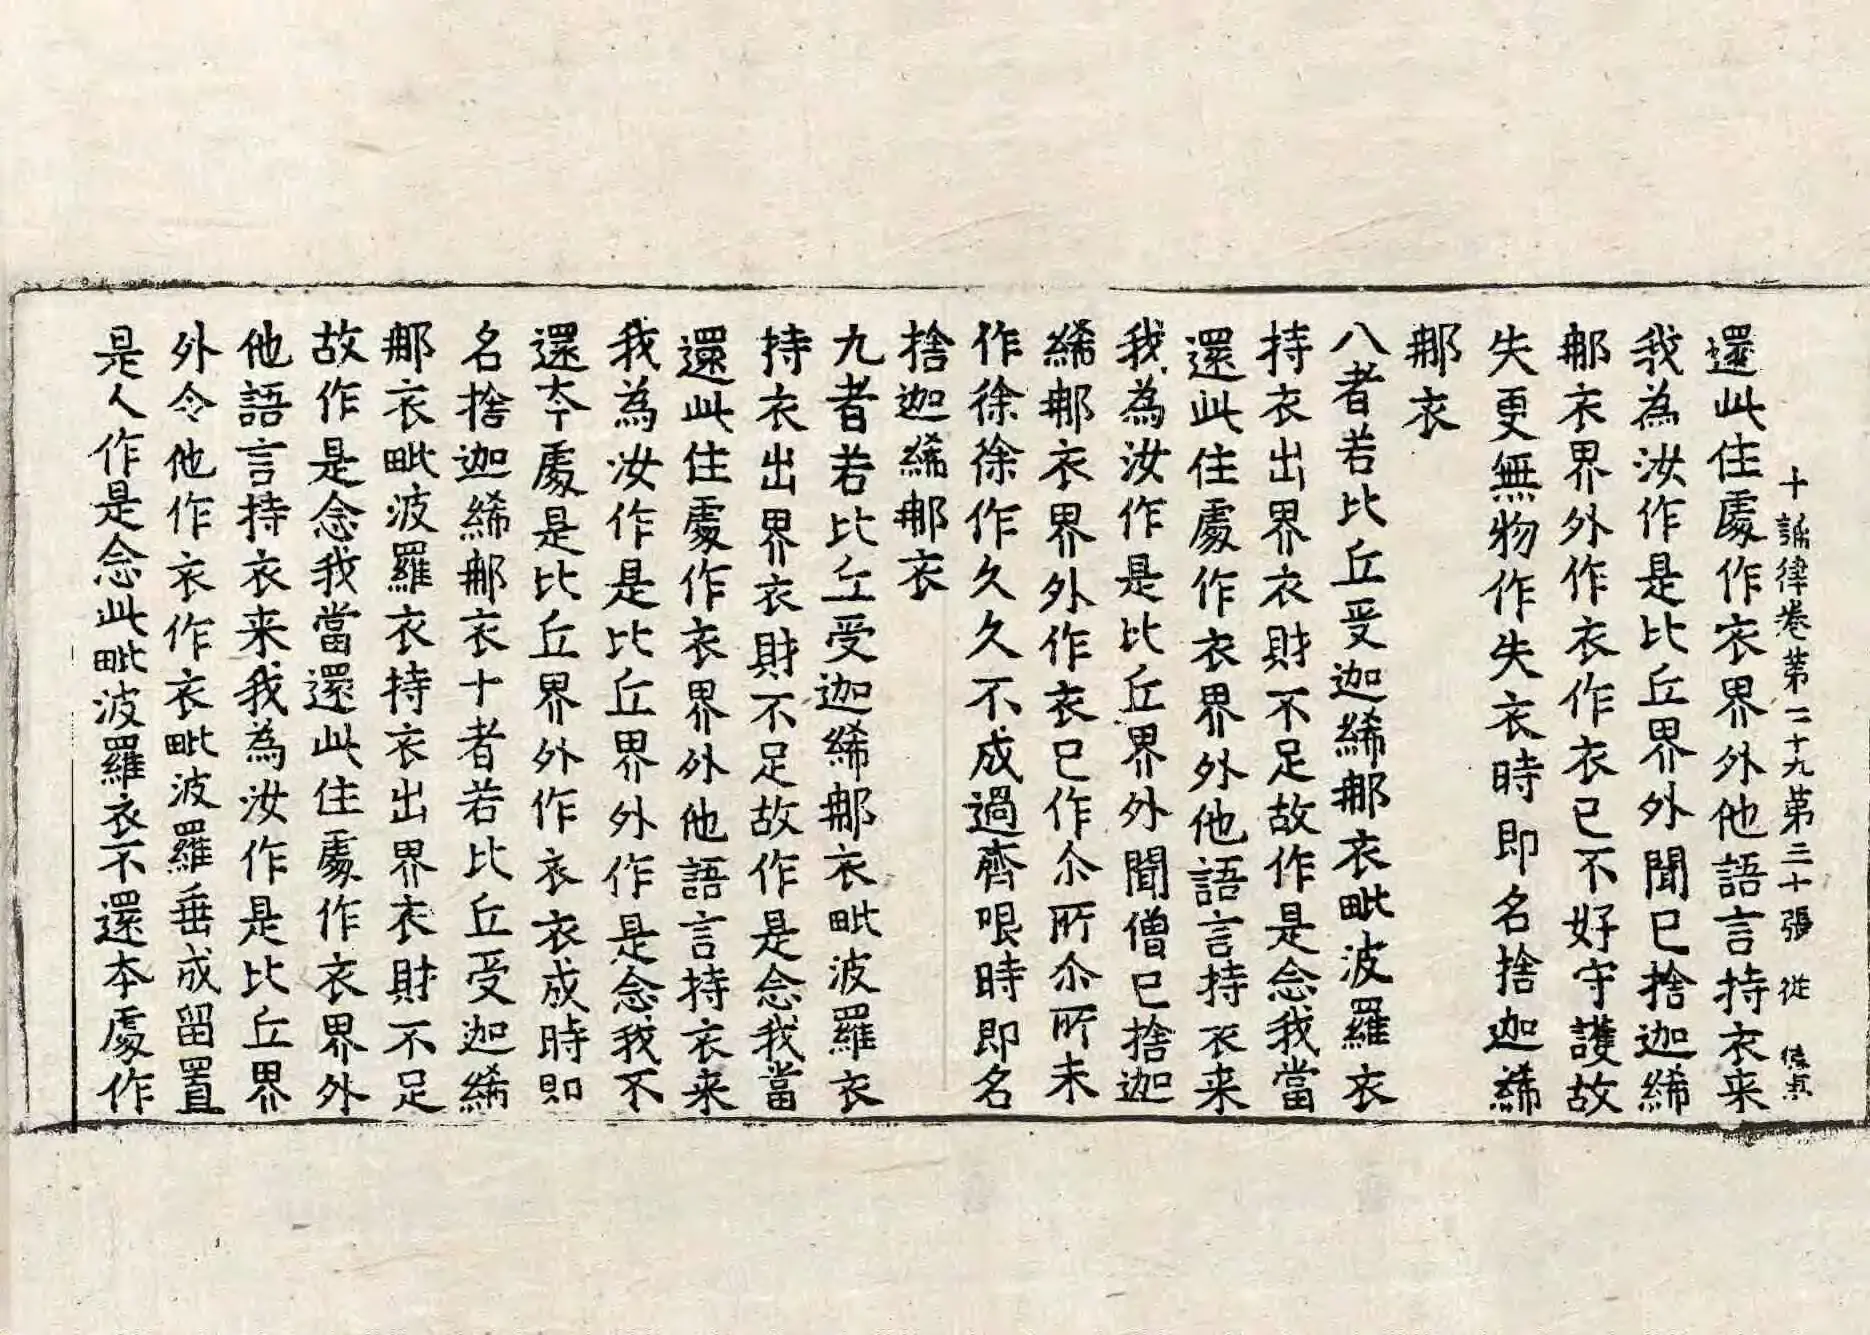 十誦律卷第二十九第三十張 從
還此住處作衣界外他語言持衣来
我為汝作是比丘界外聞已捨迦絺
那衣界外作衣作衣已不好守護故
失更無物作失衣時即名捨迦絺
那衣
八者若比丘受迦絺那衣毗波羅衣
持衣出界衣財不足故作是念我當
還此住處作衣界外他語言持衣来
我為汝作是比丘界外聞僧已捨迦
絺那衣界外作衣已作尒所尒所未
作徐徐作久久不成過齊限時即名
捨迦絺那衣
九者若比丘受迦絺那衣毗波羅衣
持衣出界衣財不足故作是念我當
還此住處作衣界外他語言持衣来
我為汝作是比丘界外作是念我不
還夲處是比丘界外作衣衣成時即
名捨迦絺那衣十者若比丘受迦絺
那衣毗波羅衣持衣出界衣財不足
故作是念我當還此住處作衣界外
他語言持衣来我為汝作是比丘界
外令他作衣作衣毗波羅垂成留置
是人作是念此毗波羅衣不還本處作